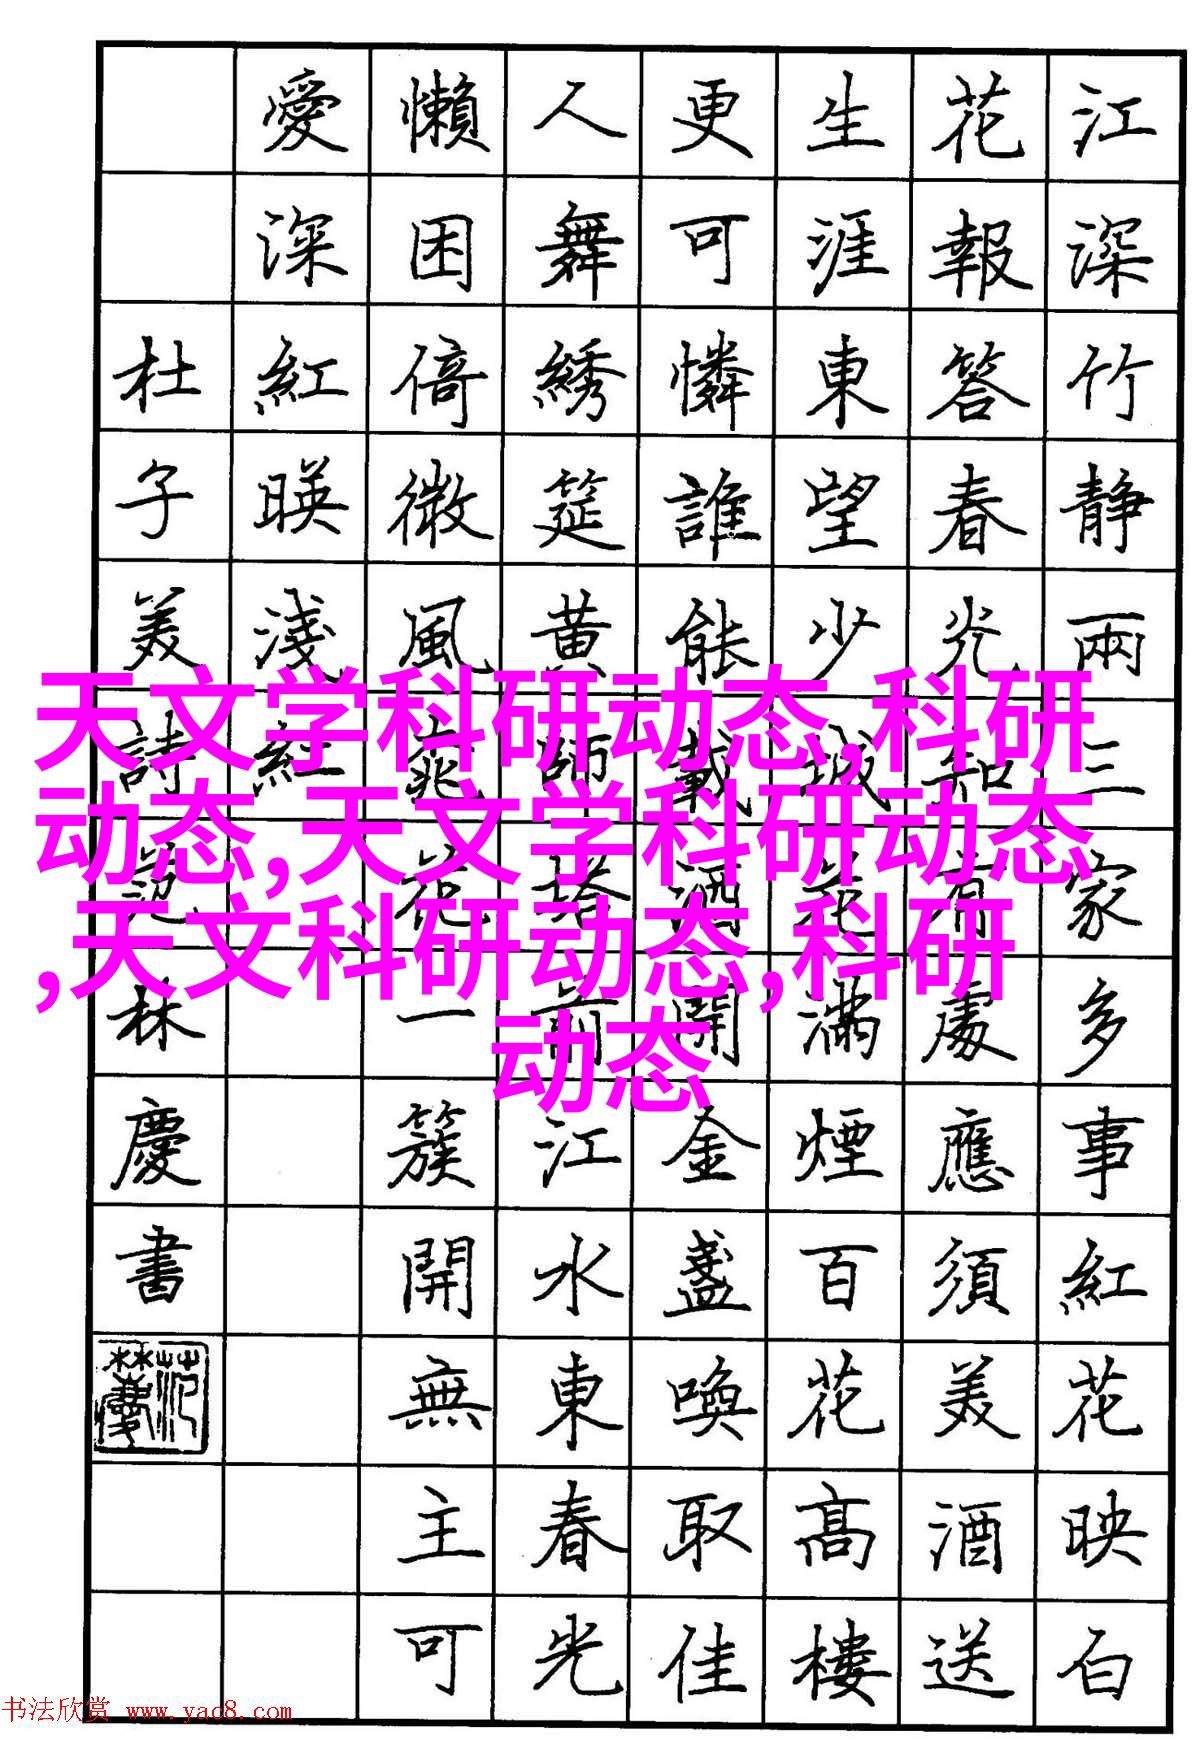 江深竹静兩三家多事紅花映白
花報答春光知有處應須美酒送
生涯東望少城花滿煙百花高樓
更可憐誰能載酒開金盞喚取佳
人舞綉筵黄師塔前江水東春光
懶困倚微風桃花一簇開無主可
愛深紅暎淺紅
杜子美詩范林慶書
范林慶
天文学科研动态,科研
动态,天文学科研动态
,天文科研动态,科研
动态
书法欣赏 www.yac8.com